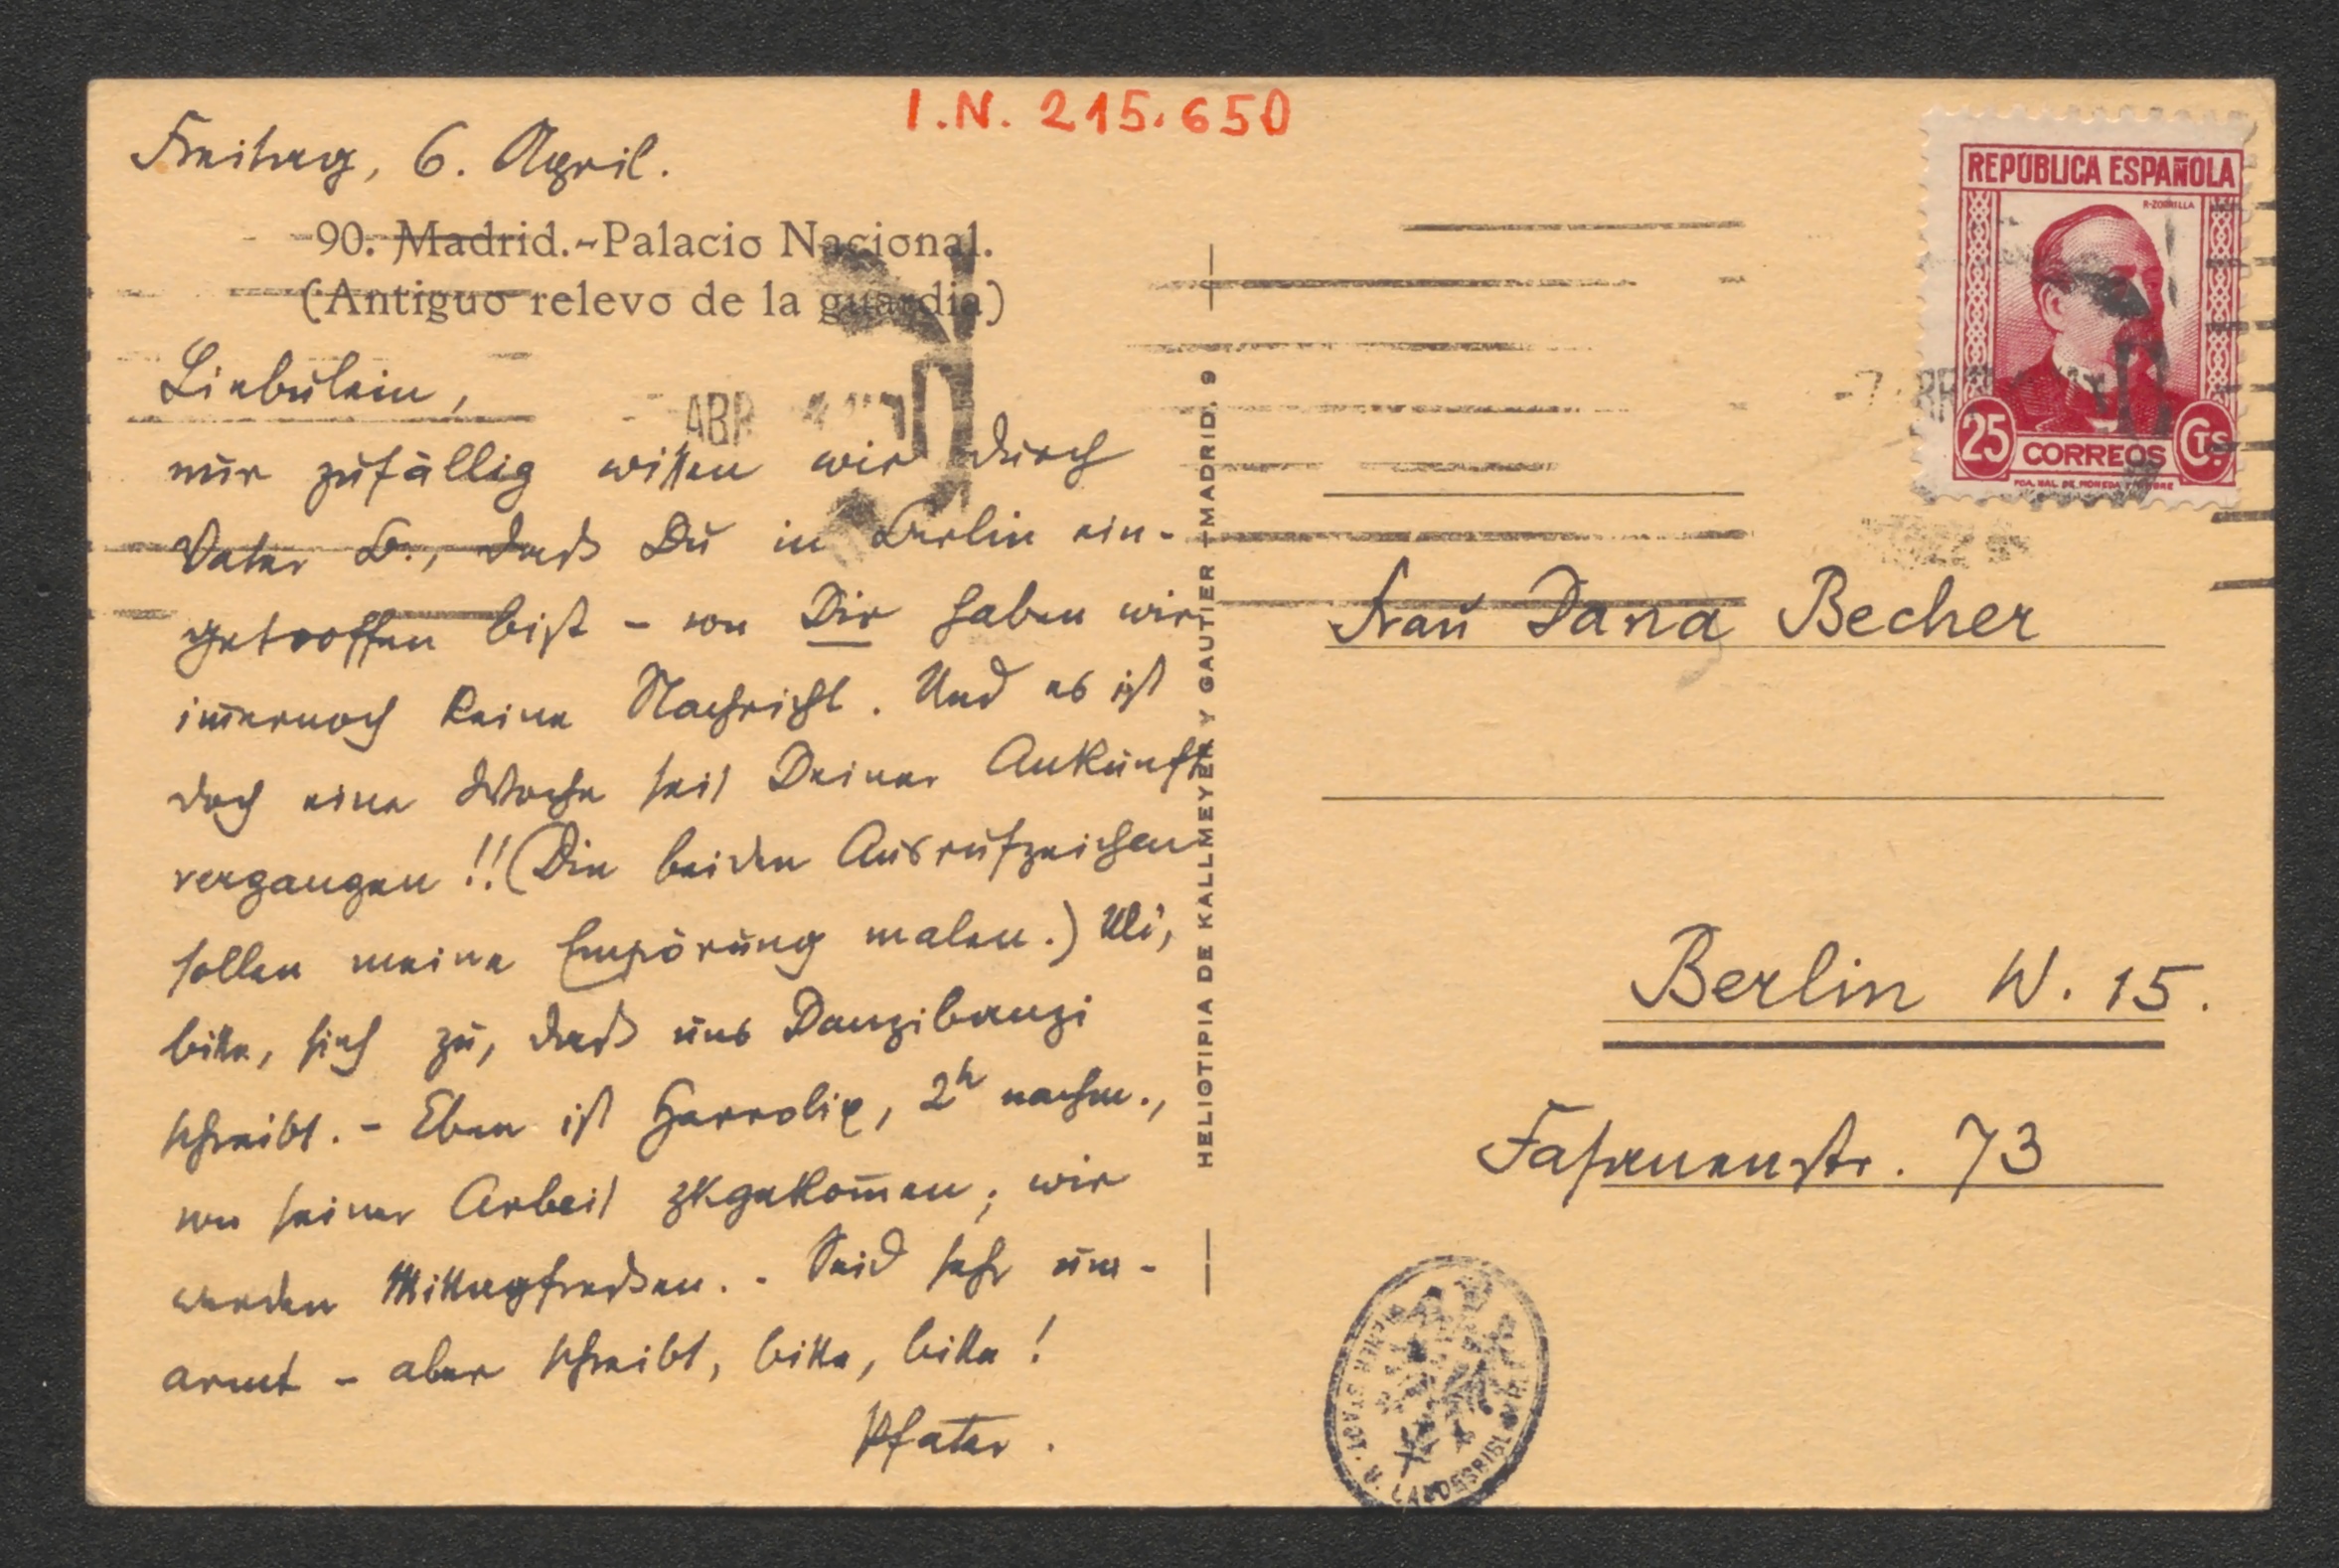 I.N. 215.650
Freitag, 6. April.
90. Madrid.-Palacio Nacional.
(Antiguo relevo de la guardia)
Liebulein,
nur zufällig wissen wir durch
Vater B., daß Du in Berlin ein-
getroffen bist – von Dir haben wir
im̄ernoch keine Nachricht. Und es ist
doch eine Woche seit Deiner Ankunft
vergangen!! (Die beiden Ausrufzeichen
sollen meine Empörung malen.) Uli,
bitte, sieh zu, daß uns Danzibanzi
schreibt. – Eben ist Harrolix, 2h nachm.,
von seiner Arbeit zkgekom̄en; wir
werden Mittagfreßen. – Seid sehr um-
armt – aber schreibt, bitte, bitte!
Pfater.
HELIOTIPIA DE KALLMEYER Y GAUTIER - MADRID, 9
REPÚBLICA ESPAÑOLA
R. ZORRILLA
25 CORREOS CTS
ABR
-7 ABR
Frau Dana Becher
Berlin W. 15.
Fasanenstr. 73
LANDESBIBL